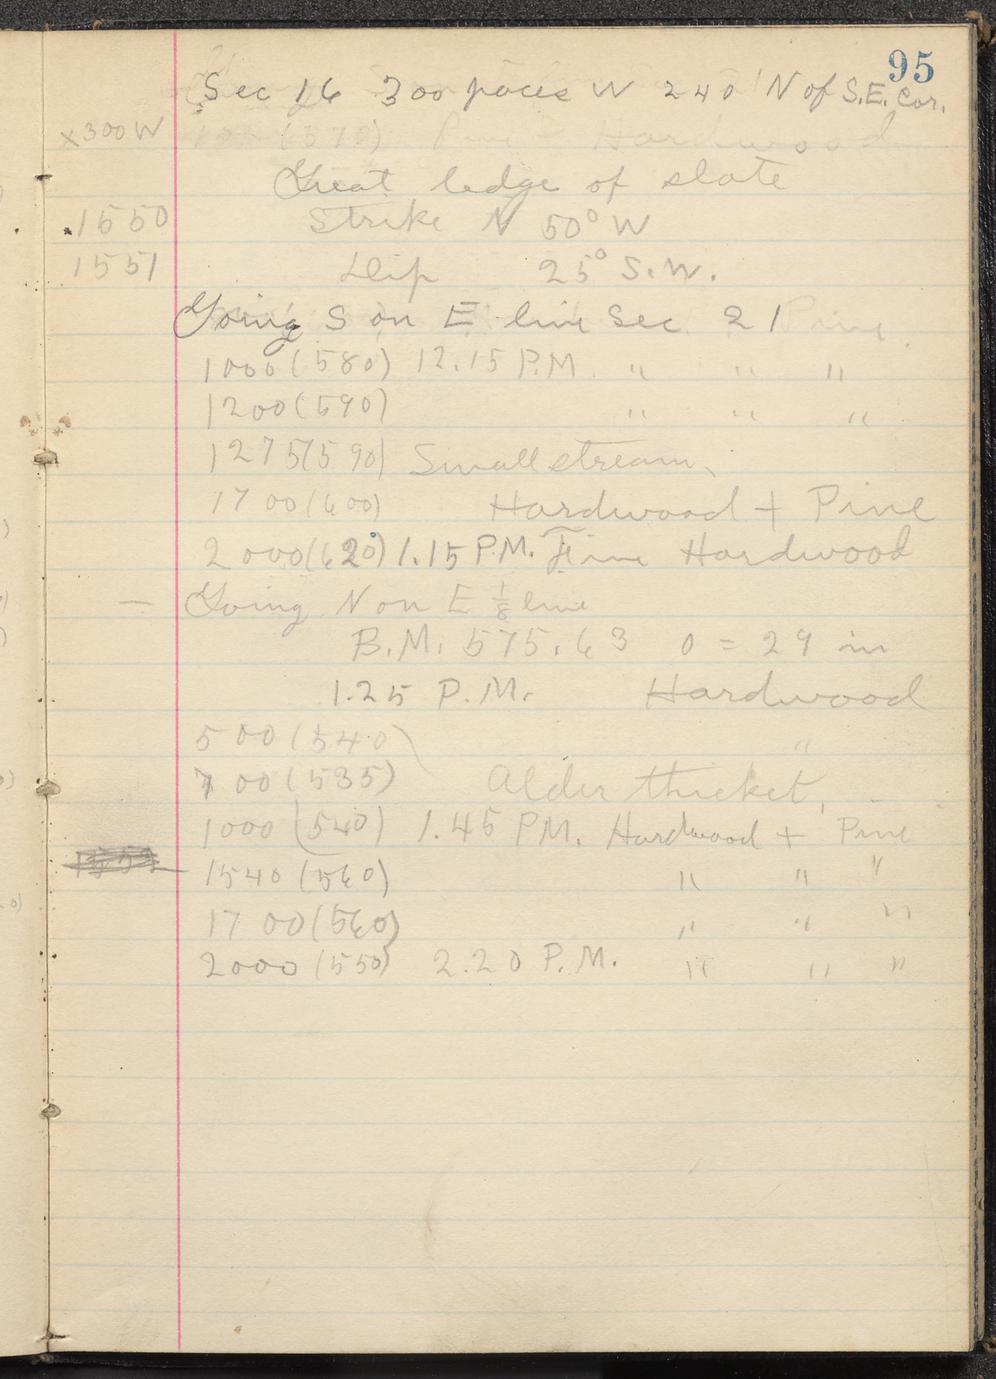 95
Sec 16 300 paces W 240 N of S.E. Cor.
x300W
Great ledge of slate
.1550 Strike N 50° W
1551 Dip 25° S.W.
Going S on E line Sec 21 Pine
1000(580) 12.15 P.M. " " "
1200(590) " " "
1275(590) Small stream,
1700(600) Hardwood + Pine
2000(620) 1.15 P.M. Hardwood
— Going N on E 1/8 line
B.M. 575.63 0 = 29 in
1.25 P.M. Hardwood
500(540) "
700(535) Alder thicket,
1000(540) 1.45 PM. Hardwood + Pine
1540(560) " " "
1700(560) " " "
2000(550) 2.20 P.M. " " "